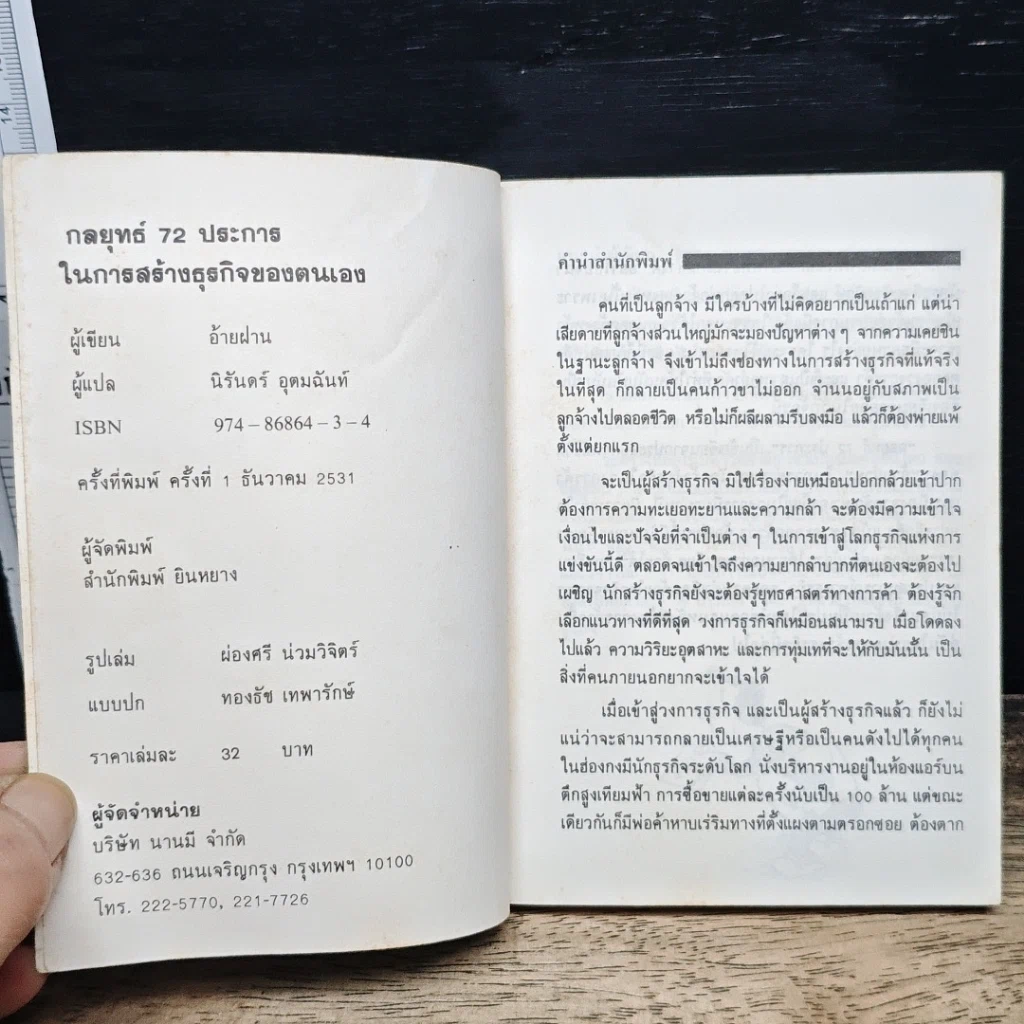 กลยุทธ์ 72 ประการ
ในการสร้างธุรกิจของตนเอง
ผู้เขียน อ้ายฝาน
ผู้แปล นิรันดร์ อุตมฉันท์
ISBN 974-86864-3-4
ครั้งที่พิมพ์ ครั้งที่ 1 ธันวาคม 2531
ผู้จัดพิมพ์
สำนักพิมพ์ ยินหยาง
รูปเล่ม ผ่องศรี น่วมวิจิตร์
แบบปก ทองธัช เทพารักษ์
ราคาเล่มละ 32 บาท
ผู้จัดจำหน่าย
บริษัท นานมี จำกัด
632-636 ถนนเจริญกรุง กรุงเทพฯ 10100
โทร. 222-5770, 221-7726
คำนำสำนักพิมพ์
คนที่เป็นลูกจ้าง มีใครบ้างที่ไม่คิดอยากเป็นเถ้าแก่ แต่น่า
เสียดายที่ลูกจ้างส่วนใหญ่มักจะมองปัญหาต่าง ๆ จากความเคยชิน
ในฐานะลูกจ้าง จึงเข้าไม่ถึงช่องทางในการสร้างธุรกิจที่แท้จริง
ในที่สุด ก็กลายเป็นคนก้าวขาไม่ออก จำนนอยู่กับสภาพเป็น
ลูกจ้างไปตลอดชีวิต หรือไม่ก็ผลีผลามรีบลงมือ แล้วก็ต้องพ่ายแพ้
ตั้งแต่ยกแรก
จะเป็นผู้สร้างธุรกิจ มิใช่เรื่องง่ายเหมือนปอกกล้วยเข้าปาก
ต้องการความทะเยอทะยานและความกล้า จะต้องมีความเข้าใจ
เงื่อนไขและปัจจัยที่จำเป็นต่าง ๆ ในการเข้าสู่โลกธุรกิจแห่งการ
แข่งขันนี้ดี ตลอดจนเข้าใจถึงความยากลำบากที่ตนเองจะต้องไป
เผชิญ นักสร้างธุรกิจยังจะต้องรู้ยุทธศาสตร์ทางการค้า ต้องรู้จัก
เลือกแนวทางที่ดีที่สุด วงการธุรกิจก็เหมือนสนามรบ เมื่อโดดลง
ไปแล้ว ความวิริยะอุตสาหะ และการทุ่มเทที่จะให้กับมันนั้น เป็น
สิ่งที่คนภายนอกยากจะเข้าใจได้
เมื่อเข้าสู่วงการธุรกิจ และเป็นผู้สร้างธุรกิจแล้ว ก็ยังไม่
แน่ว่าจะสามารถกลายเป็นเศรษฐีหรือเป็นคนดังไปได้ทุกคน
ในฮ่องกงมีนักธุรกิจระดับโลก นั่งบริหารงานอยู่ในห้องแอร์บน
ตึกสูงเทียมฟ้า การซื้อขายแต่ละครั้งนับเป็น 100 ล้าน แต่ขณะ
เดียวกันก็มีพ่อค้าหาบเร่ริมทางที่ตั้งแผงตามตรอกซอย ต้องตาก
14